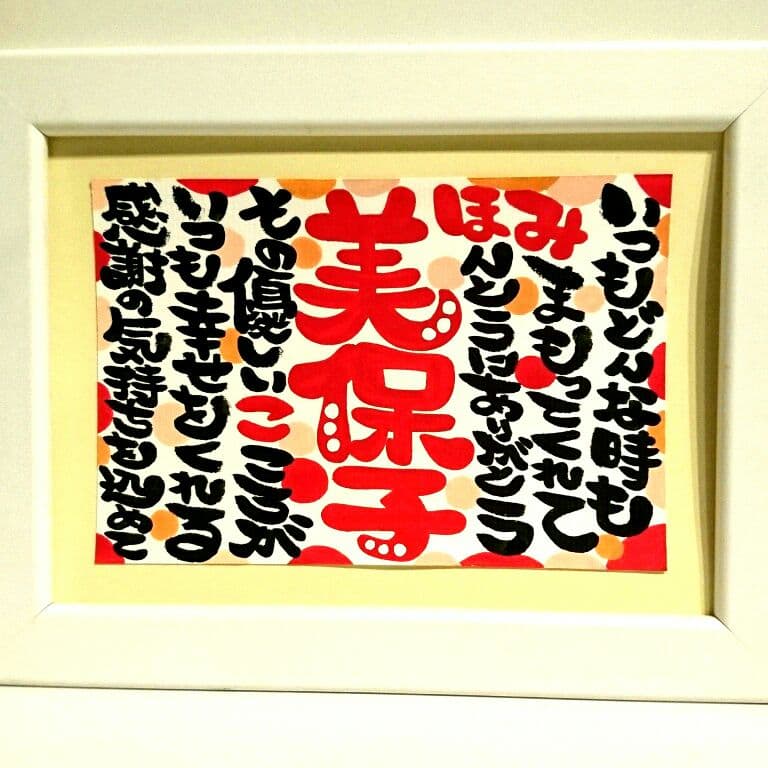 いつもどんな時も
みまもってくれて
ほんとうにありがとう
美保子
その優しいこころが
いつも幸せをくれる
感謝の気持ちを込めて